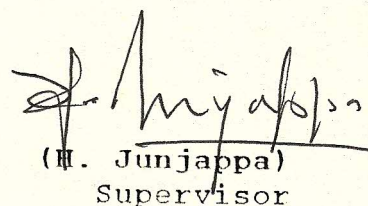 (H. Junjappa)
Supervisor